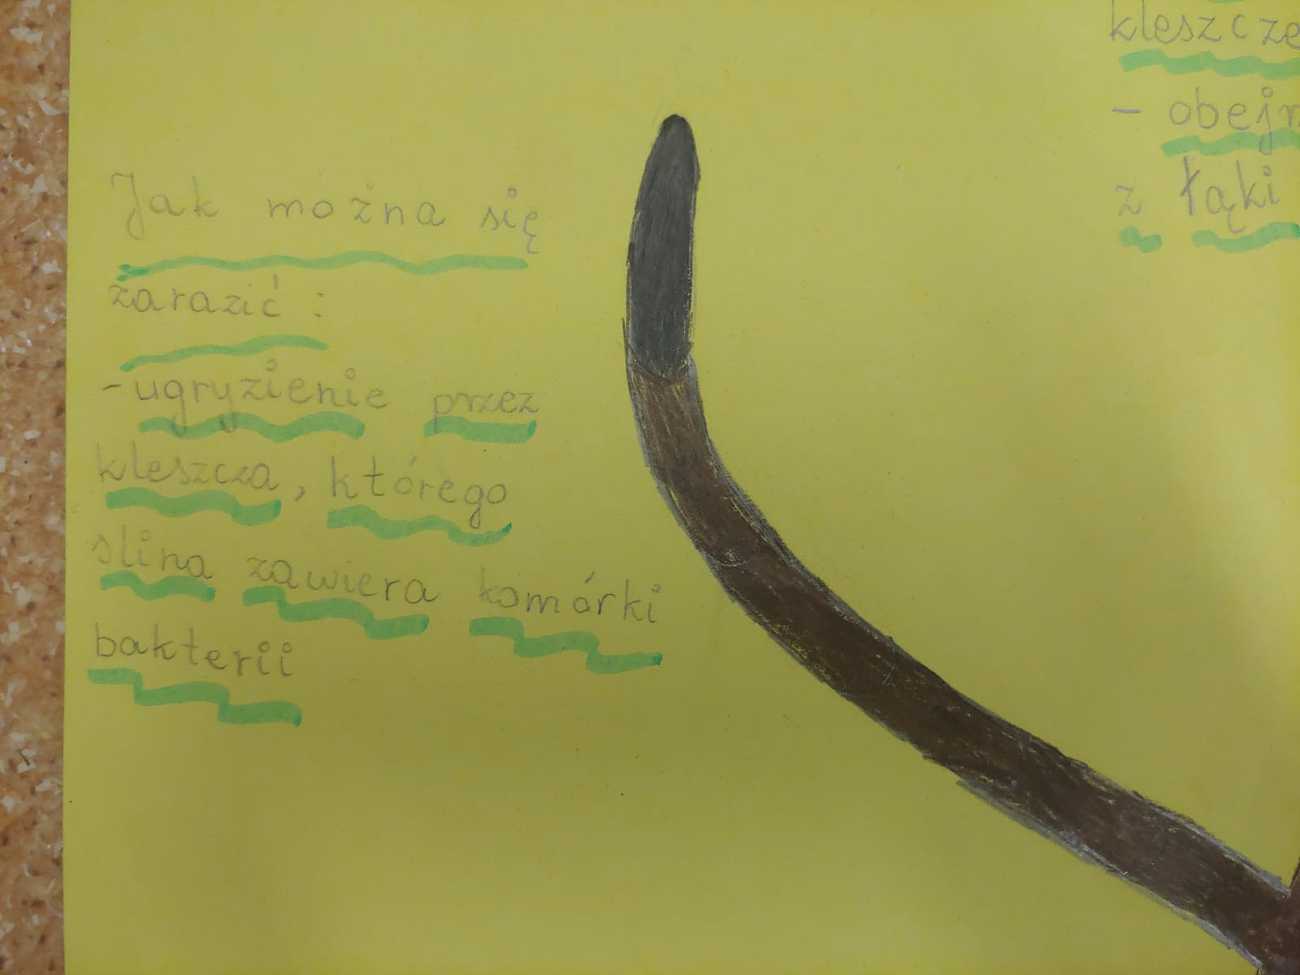 Jak można się
zarazić:
- ugryzienie przez
kleszcza, którego
ślina zawiera komórki
bakterii
kleszcze
-
z łąki